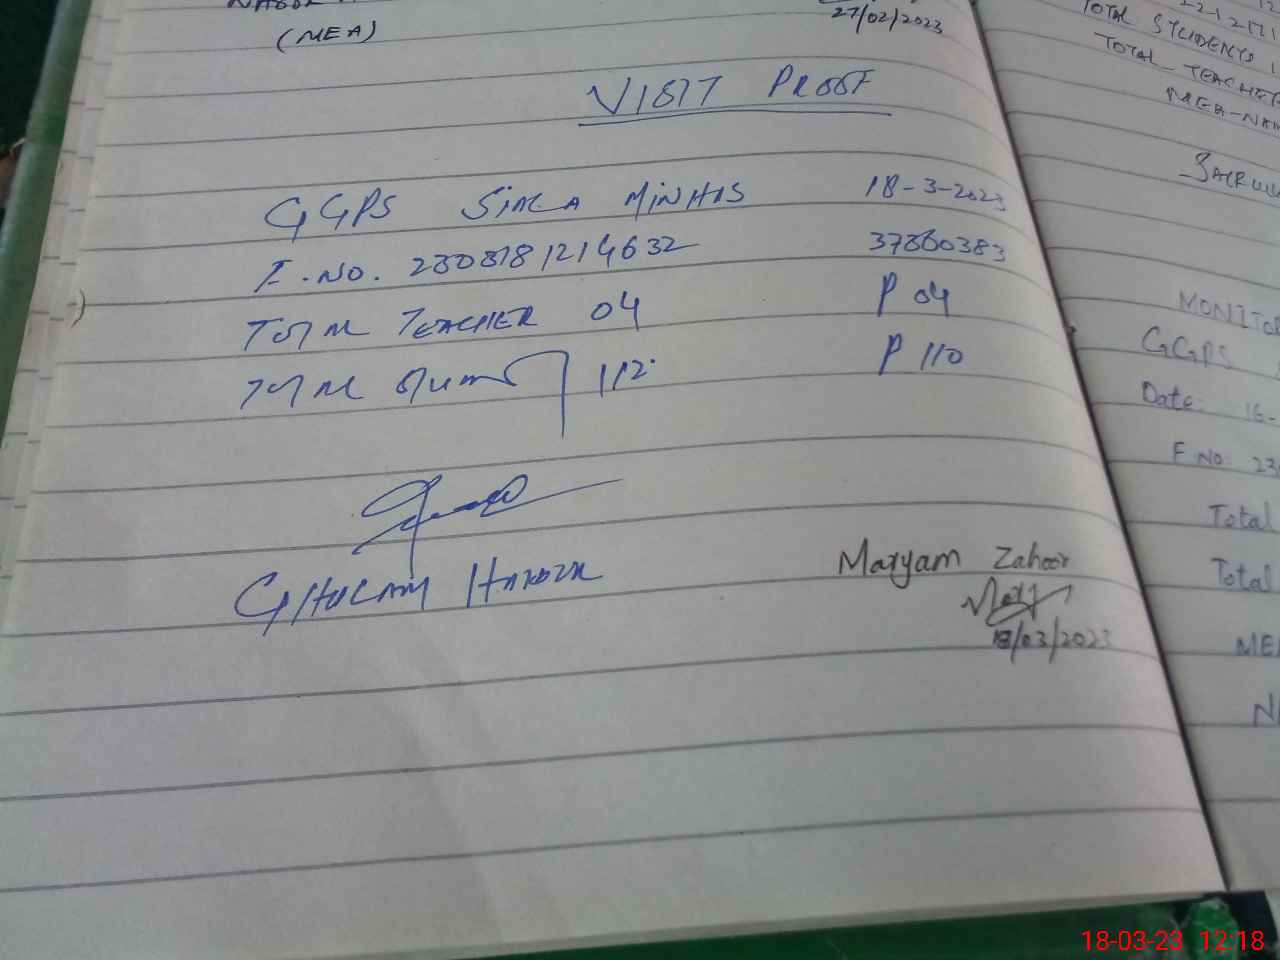 (MEA)
27/02/2023
VISIT PROOF
GGPS SIALA MINHAS 18-3-2023
F.NO. 2308181214632 37360383
TOTAL TEACHER 04 P 04
TOTAL 112 P 110
GHULAM
Maryam Zahoor
18/03/2023
TOTAL STUDENTS
TOTAL TEACHER
MEA-
MONITOR
GGPS
Date: 16-
F.NO. 23
Total
Total
ME
18-03-23 12:18